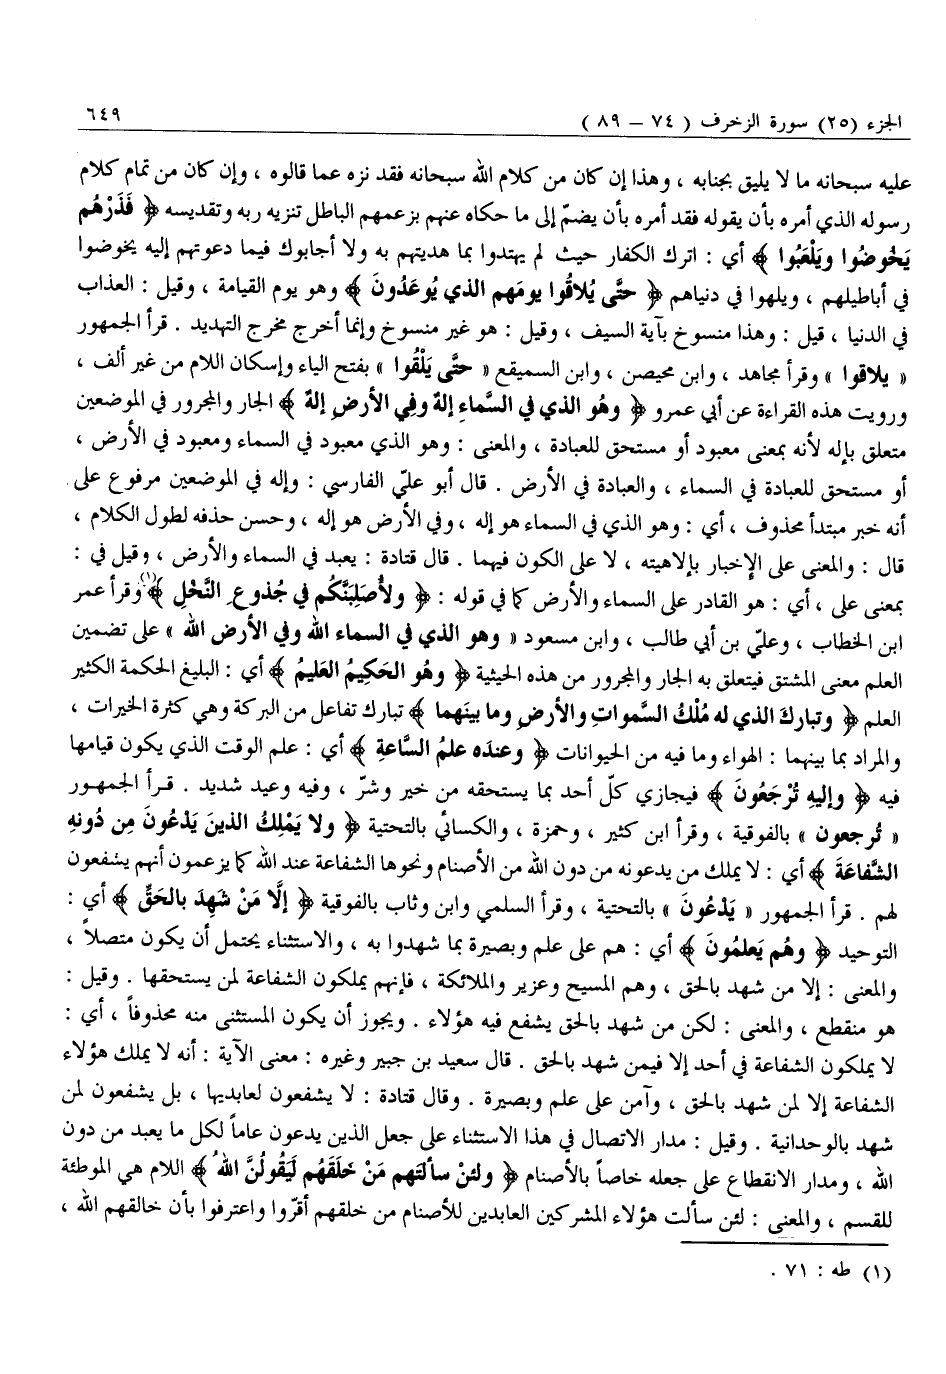 الجزء (٢٥) سورة الزخرف ( ٧٤ – ٨٩ ) ٦٤٩
عليه سبحانه ما لا يليق بجنابه ، وهذا إن كان من كلام الله سبحانه فقد نزه عما قالوه ، وإن كان من تمام كلام
رسوله الذي أمره بأن يقوله فقد أمره بأن يضمّ إلى ما حكاه عنهم بزعمهم الباطل تنزيه ربه وتقديسه ﴿ فَذَرْهُم
يَخُوضُوا ويَلْعَبُوا ﴾ أي : اترك الكفار حيث لم يهتدوا بما هديتهم به ولا أجابوك فيما دعوتهم إليه يخوضوا
في أباطيلهم ، ويلهوا في دنياهم ﴿ حتَّى يُلاقُوا يومَهم الذي يُوعَدُونَ ﴾ وهو يوم القيامة ، وقيل : العذاب
في الدنيا ، قيل : وهذا منسوخ بآية السيف ، وقيل : هو غير منسوخ وإنما أخرج مخرج التهديد . قرأ الجمهور
« يلاقوا » وقرأ مجاهد ، وابن محيصن ، وابن السميقع « حتَّى يَلْقُوا » بفتح الياء وإسكان اللام من غير ألف ،
ورويت هذه القراءة عن أبي عمرو ﴿ وهُو الذي في السَّماءِ إلهٌ وفِي الأرضِ إلهٌ ﴾ الجار والمجرور في الموضعين
متعلق بإله لأنه بمعنى معبود أو مستحق للعبادة ، والمعنى : وهو الذي معبود في السماء ومعبود في الأرض ،
أو مستحق للعبادة في السماء ، والعبادة في الأرض . قال أبو عليّ الفارسي : وإله في الموضعين مرفوع على
أنه خبر مبتدأ محذوف ، أي : وهو الذي في السماء هو إله ، وفي الأرض هو إله ، وحسن حذفه لطول الكلام ،
قال : والمعنى على الإخبار بإلاهيته ، لا على الكون فيهما . قال قتادة : يعبد في السماء والأرض ، وقيل في :
بمعنى على ، أي : هو القادر على السماء والأرض كما في قوله : ﴿ ولأُصَلِبَنَّكُم في جُذوعِ النَّخْلِ ﴾(١) وقرأ عمر
ابن الخطاب ، وعليّ بن أبي طالب ، وابن مسعود « وهو الذي في السماء الله وفي الأرض الله » على تضمين
العلم معنى المشتق فيتعلق به الجار والمجرور من هذه الحيثية ﴿ وهُو الحَكِيمُ العَليمُ ﴾ أي : البليغ الحكمة الكثير
العلم ﴿ وتباركَ الذي له مُلْكُ السَّمواتِ والأرضِ وما بينَهما ﴾ تبارك تفاعل من البركة وهي كثرة الخيرات ،
والمراد بما بينهما : الهواء وما فيه من الحيوانات ﴿ وعندَه علمُ السَّاعةِ ﴾ أي : علم الوقت الذي يكون قيامها
فيه ﴿ وإليهِ تُرْجَعُونَ ﴾ فيجازي كلّ أحد بما يستحقه من خير وشرّ ، وفيه وعيد شديد . قرأ الجمهور
« تُرجعون » بالفوقية ، وقرأ ابن كثير ، وحمزة ، والكسائي بالتحتية ﴿ ولا يَمْلِكُ الذينَ يَدْعُونَ مِن دُونهِ
الشَّفاعَةَ ﴾ أي : لا يملك من يدعونه من دون الله من الأصنام ونحوها الشفاعة عند الله كما يزعمون أنهم يشفعون
لهم . قرأ الجمهور « يَدْعُونَ » بالتحتية ، وقرأ السلمي وابن وثاب بالفوقية ﴿ إلَّا مَنْ شَهِدَ بالحَقِّ ﴾ أي :
التوحيد ﴿ وهُم يَعلمُونَ ﴾ أي : هم على علم وبصيرة بما شهدوا به ، والاستثناء يحتمل أن يكون متصلاً ،
والمعنى : إلا من شهد بالحق ، وهم المسيح وعزير والملائكة ، فإنهم يملكون الشفاعة لمن يستحقها . وقيل :
هو منقطع ، والمعنى : لكن من شهد بالحق يشفع فيه هؤلاء . ويجوز أن يكون المستثنى منه محذوفاً ، أي :
لا يملكون الشفاعة في أحد إلا فيمن شهد بالحق . قال سعيد بن جبير وغيره : معنى الآية : أنه لا يملك هؤلاء
الشفاعة إلا لمن شهد بالحق ، وآمن على علم وبصيرة . وقال قتادة : لا يشفعون لعابديها ، بل يشفعون لمن
شهد بالوحدانية . وقيل : مدار الاتصال في هذا الاستثناء على جعل الذين يدعون عاماً لكل ما يعبد من دون
الله ، ومدار الانقطاع على جعله خاصاً بالأصنام ﴿ ولئنْ سألتَهم مَنْ خَلَقَهُم لَيَقُولُنَّ اللهُ ﴾ اللام هي الموطئة
للقسم ، والمعنى : لئن سألت هؤلاء المشركين العابدين للأصنام من خلقهم أقرّوا واعترفوا بأن خالقهم الله ،
(١) طه : ٧١ .